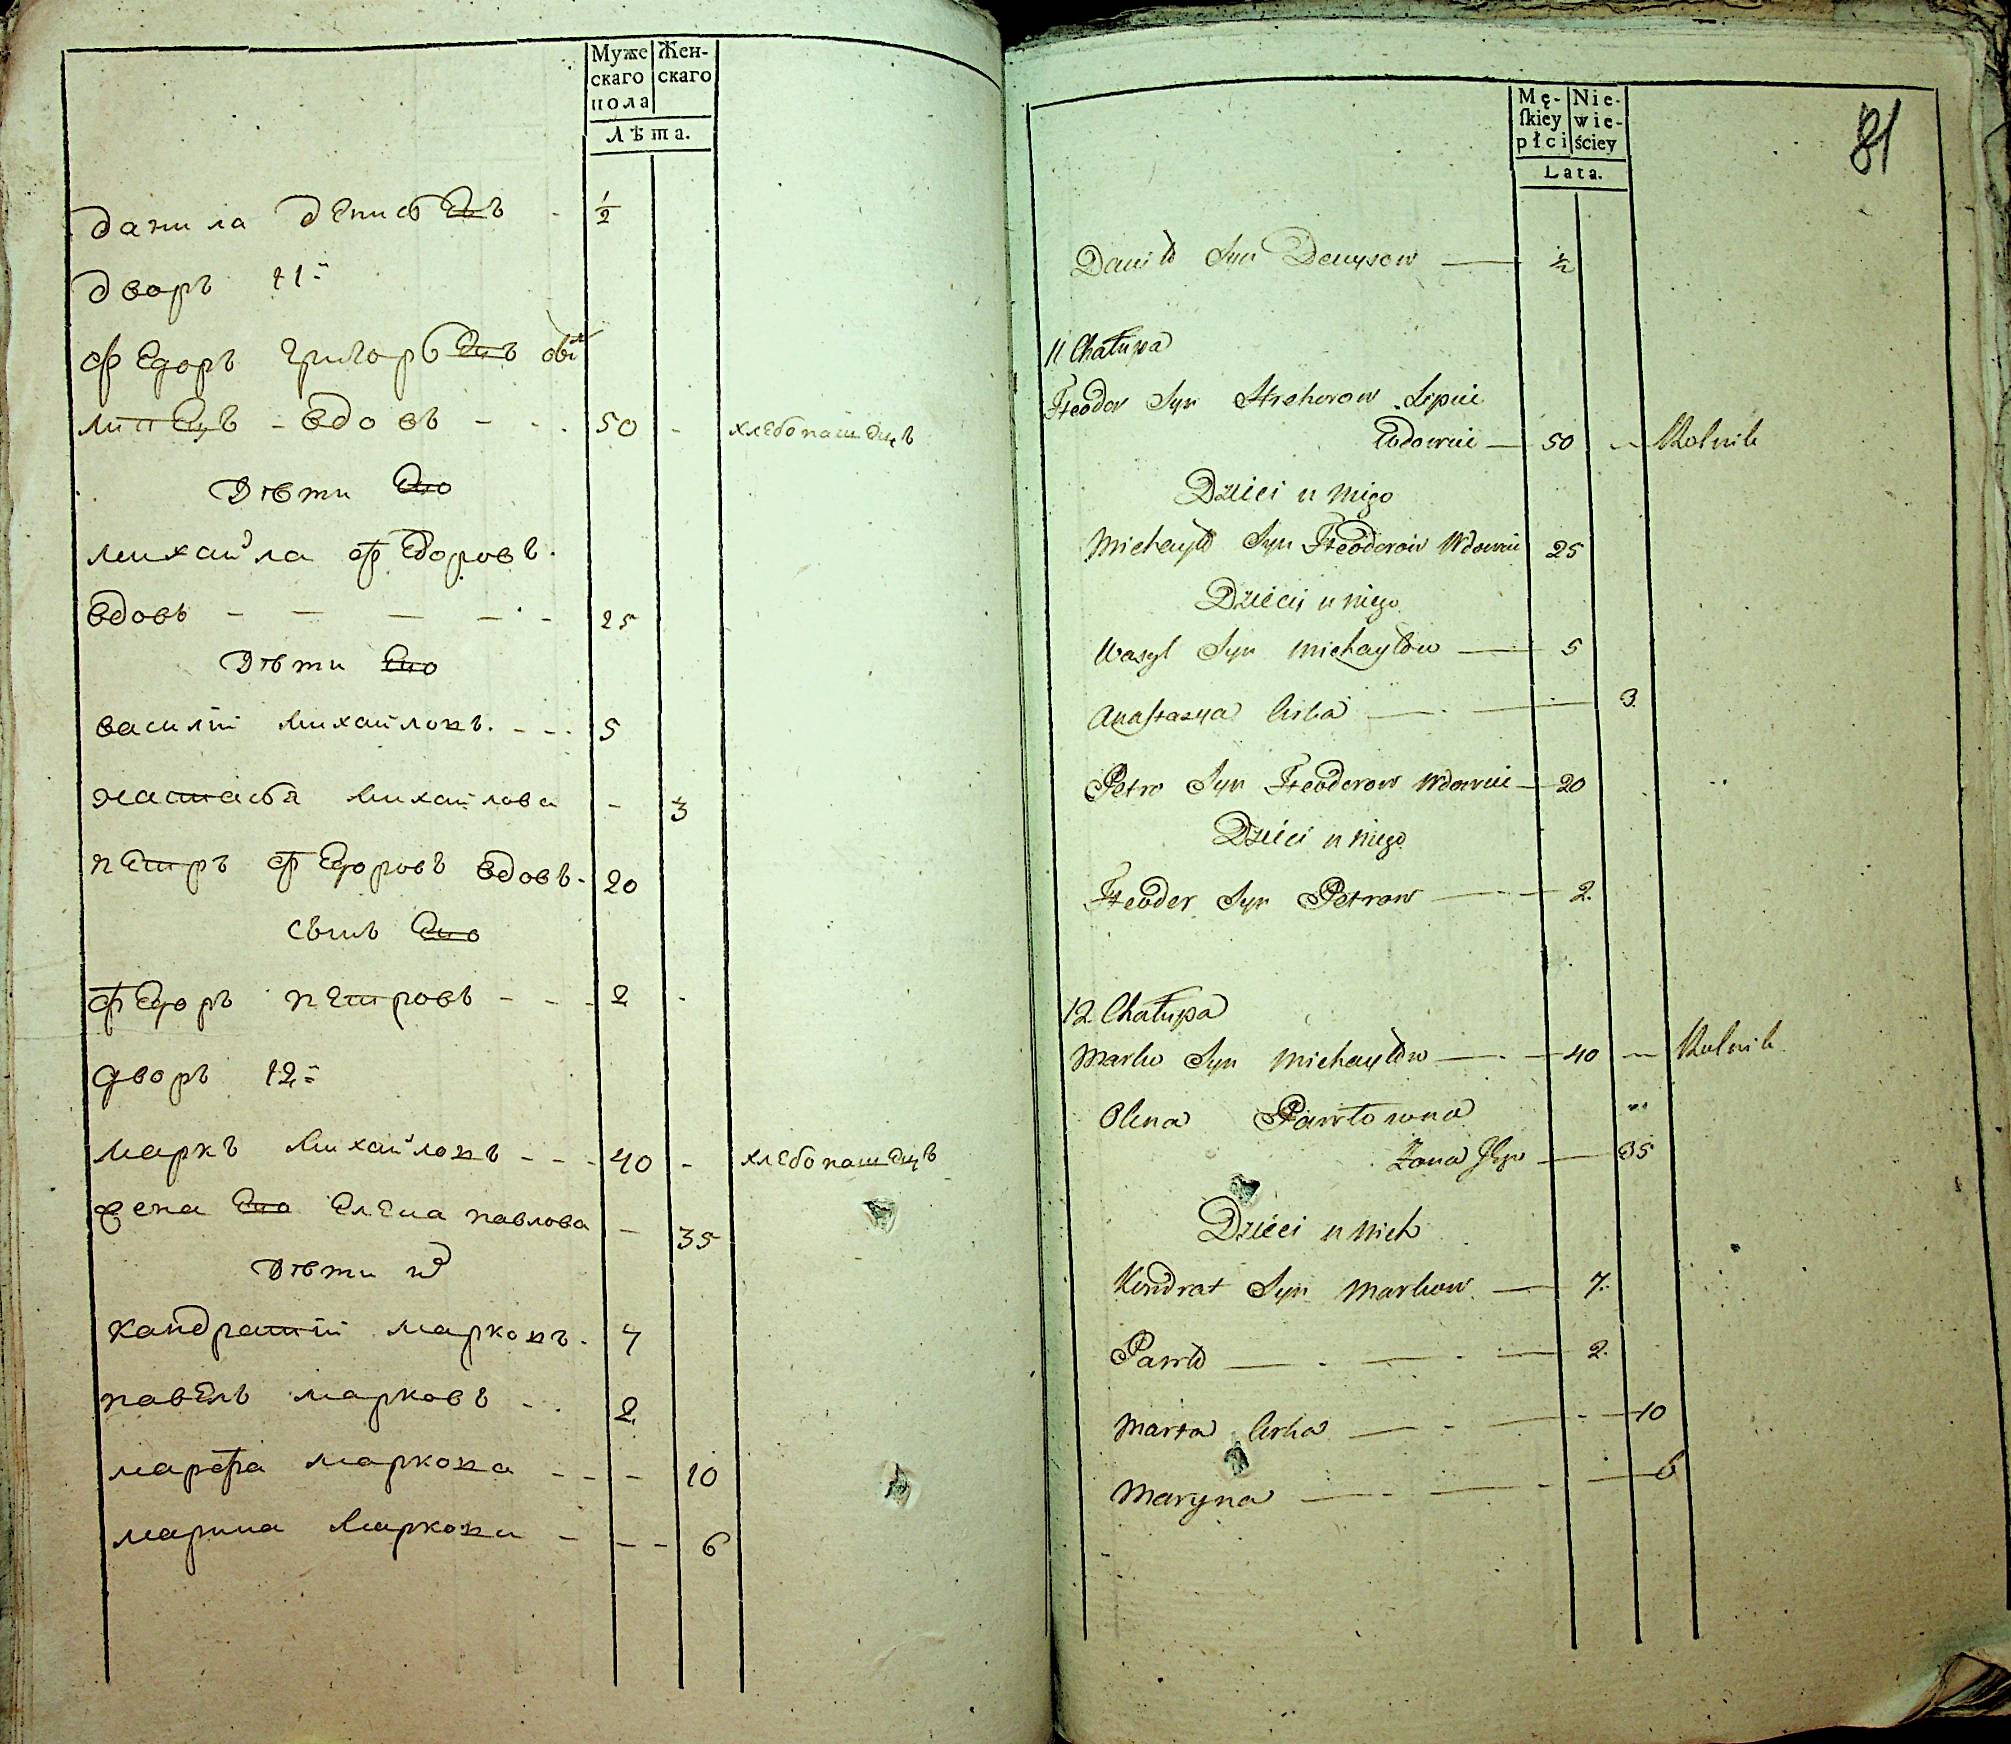 Муже Жен-
скаго скаго
пола
Лѣта.
данила денисовъ - ½
дворъ 11й
федоръ григорьевъ
липецъ - вдовъ - - - 50 - хлебопашецъ
Дѣти Его
михайла федоровъ
вдовъ - - - - - 25
Дѣти Его
василій михайловъ - - - 5
настасья михайлова - 3
петръ федоровъ вдовъ - 20
сынъ Его
федоръ петровъ - - - 2 -
дворъ 12й
маркъ михайловъ - - - 40 - хлебопашецъ
жена Его Елена павлова - 35
Дѣти ихъ
кандратій марковъ - 7
павелъ марковъ - - 2
марфа маркова - - - 10
марина маркова - - - 6
Mę- Nie-
ſkiey wie-
płci ściey
Lata.
81
Daniło Syn Denysow — ½
11 Chałupa
Fteodor Syn Hrehorow Lipiec
Wdowiec — 50 - Rolnik
Dzieci u niego
Michayło Syn Fteodorow Wdowiec 25
Dzieci u niego
Wasyl Syn Michayłow — 5
Anastazya Curka — - — 3
Petro Syn Fteodorow Wdowiec — 20
Dzieci u niego
Fteoder Syn Petrow — - — 2.
12 Chałupa
Marko Syn Michayłow — - — 40 - Rolnik
Olena Pawłowna
Żona Jego — 35
Dzieci u nich
Kondrat Syn Markow — 7.
Pawło — - — - — 2.
Marta Curka — - — - — 10
Maryna — - — - — 6